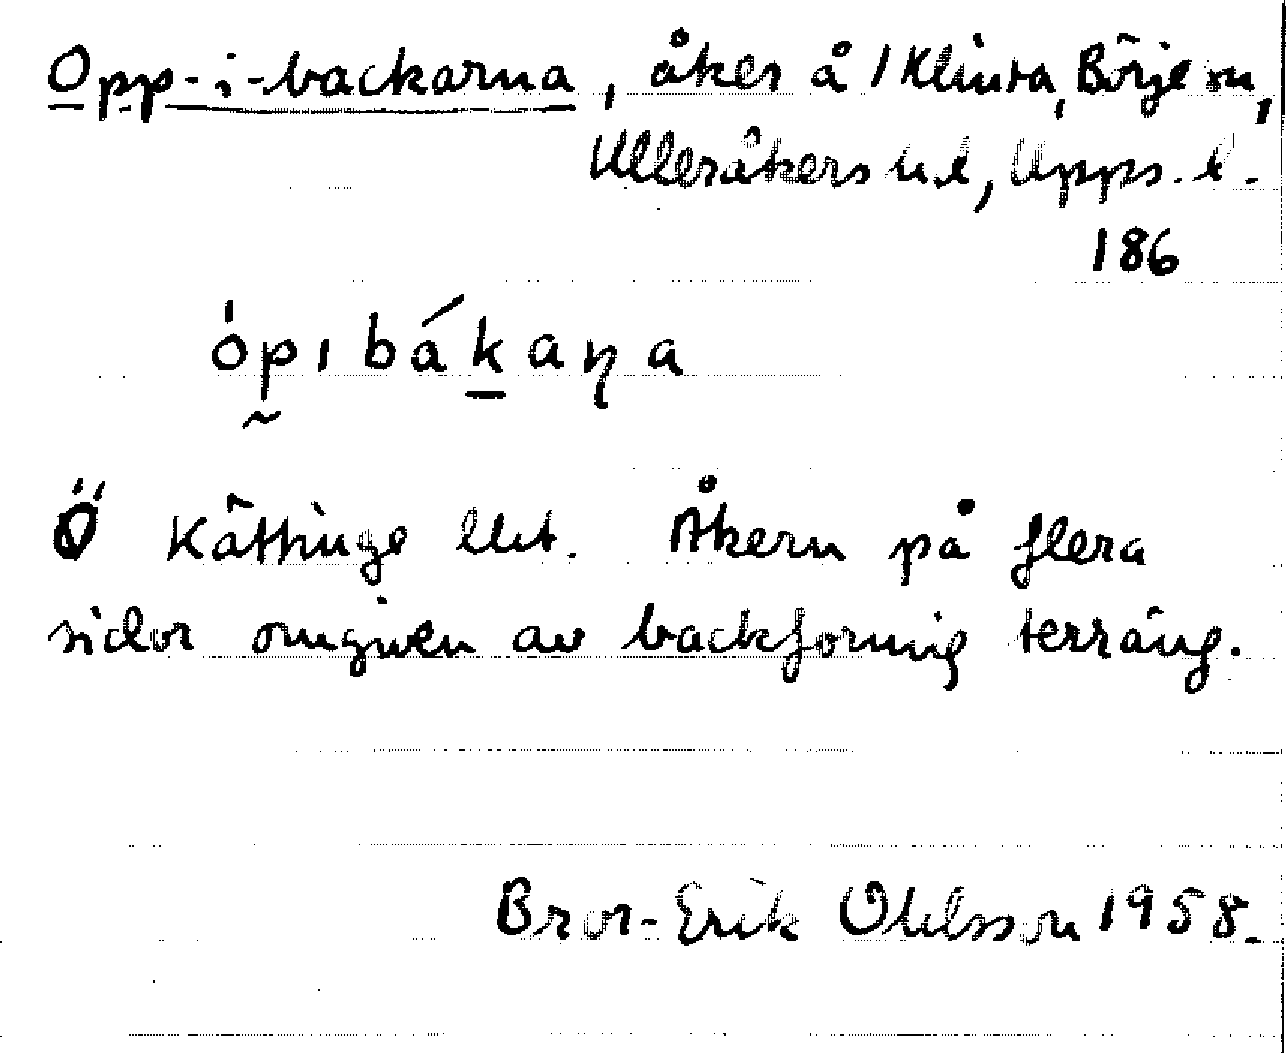 Opp-i-backarna, åker å / Klinta, Börje sn,
Ulleråkers hd, Upps. l.
186
ópıbákaɳa
Ö Kättinge Åkern på flera
sidor omgiven av backformig terräng.
Bror-Erik Ohlsson 1958.